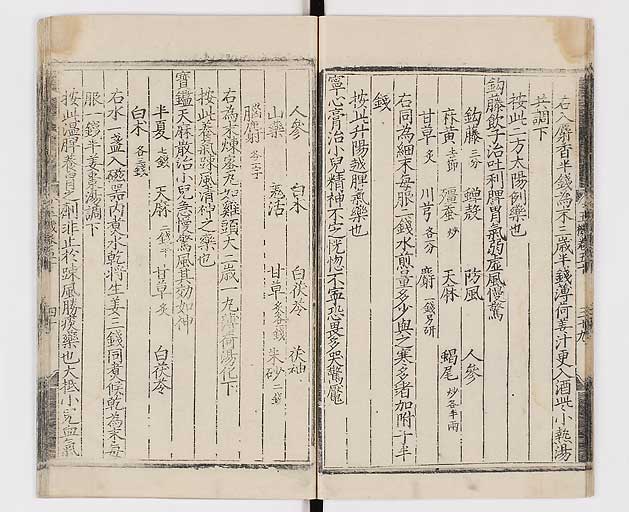 右入麝香半錢為末三歲半錢薄荷姜汁更入酒些小熱湯
共調下
按此二方太陽例藥也
鈎藤飮子治吐利脾胃氣弱虛風慢驚
鈎藤 三分 蟬殼 防風 人參
麻黃 去節 殭蚕 炒 天麻 蝎尾 炒各半兩
甘草 炙 川芎 各二分 麝 一錢另研
右同為細末每服二錢水煎量多少與之寒多者加附子半
錢
按此升陽越脾氣藥也
寧心膏治小兒精神不定恍惚不寧恐畏多哭驚魘
人參 白朮 白茯苓 茯神
山藥 羌活 甘草 炙各錢 朱砂 二錢
腦麝 各三字
右為末煉蜜丸如雞頭大二歲一丸薄荷湯化下
按此養氣踈風清神之藥也
寶鑑天麻散治小兒急慢驚風其効如神
半夏 七錢 天麻 二錢半 甘草 炙 白茯苓
白朮 各三錢
右水一盞入磁器內煮水乾將生姜三錢同煮候乾為末每
服一錢半姜棗湯調下
按此溫脾養胃之劑非止於踈風勝痰藥也大抵小兒血氣